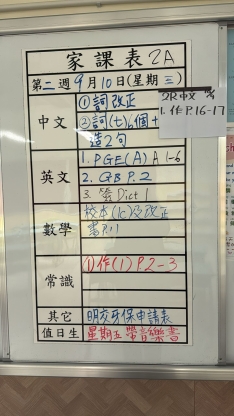 家課表 2A
第二週 9月10日(星期三)
2R中文
1. 作 P.16-17
中文
①詞改正
②詞(七)6個+
造2句
英文
1. PGE(A) A 1-6
2. GB P.2
3. Dict 1
數學
校本(1c)及改正
書P.11
常識
①作(1)P.2-3
其它
明交牙保申請表
值日生
星期五帶音樂書